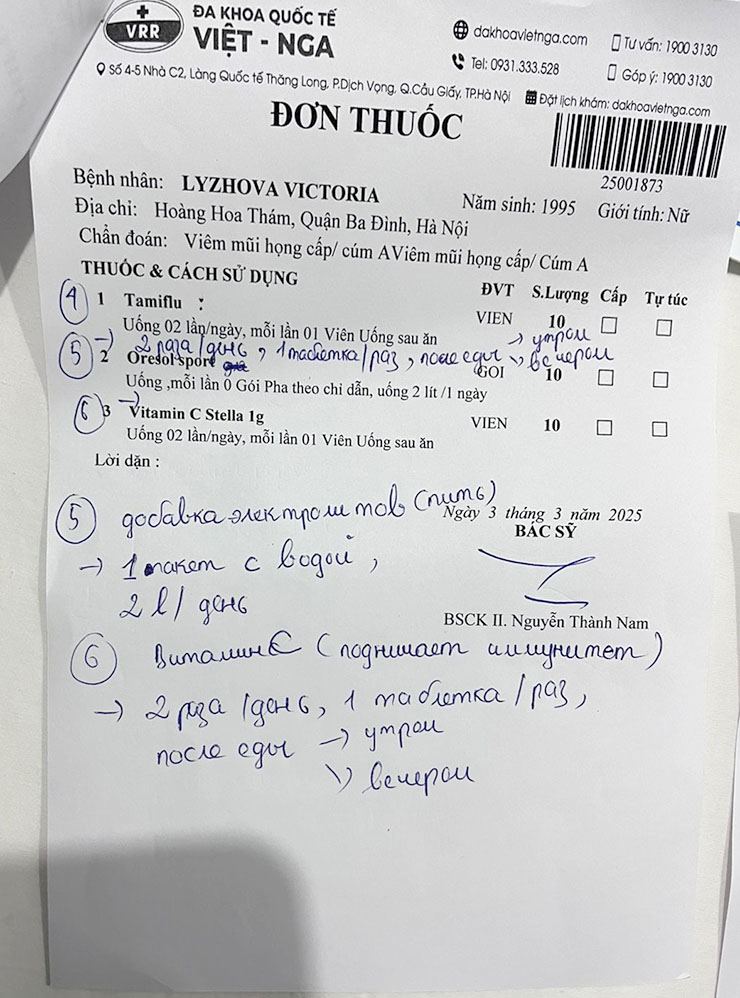 VRR
ĐA KHOA QUỐC TẾ
VIỆT - NGA
dakhoavietnga.com
Tư vấn: 1900 3130
Tel: 0931.333.528
Góp ý: 1900 3130
Số 4-5 Nhà C2, Làng Quốc tế Thăng Long, P.Dịch Vọng, Q.Cầu Giấy, TP.Hà Nội
Đặt lịch khám: dakhoavietnga.com
ĐƠN THUỐC
25001873
Bệnh nhân: LYZHOVA VICTORIA
Năm sinh: 1995 Giới tính: Nữ
Địa chỉ: Hoàng Hoa Thám, Quận Ba Đình, Hà Nội
Chẩn đoán: Viêm mũi họng cấp/ cúm AViêm mũi họng cấp/ Cúm A
THUỐC & CÁCH SỬ DỤNG ĐVT S.Lượng Cấp Tự túc
4 1 Tamiflu : VIEN 10
Uống 02 lần/ngày, mỗi lần 01 Viên Uống sau ăn
→ 2 раза/день, 1 таблетка/раз, после еды → утром
↘ вечером
5 2 Oresol sport GOI 10
Uống ,mỗi lần 0 Gói Pha theo chỉ dẫn, uống 2 lít /1 ngày
6 3 → Vitamin C Stella 1g VIEN 10
Uống 02 lần/ngày, mỗi lần 01 Viên Uống sau ăn
Lời dặn :
5 добавка электролитов (пить)
Ngày 3 tháng 3 năm 2025
BÁC SỸ
→ 1 пакет с водой,
2 l / день
BSCK II. Nguyễn Thành Nam
6 Витамин C (поднимает иммунитет)
→ 2 раза/день, 1 таблетка/раз,
после еды → утром
↘ вечером